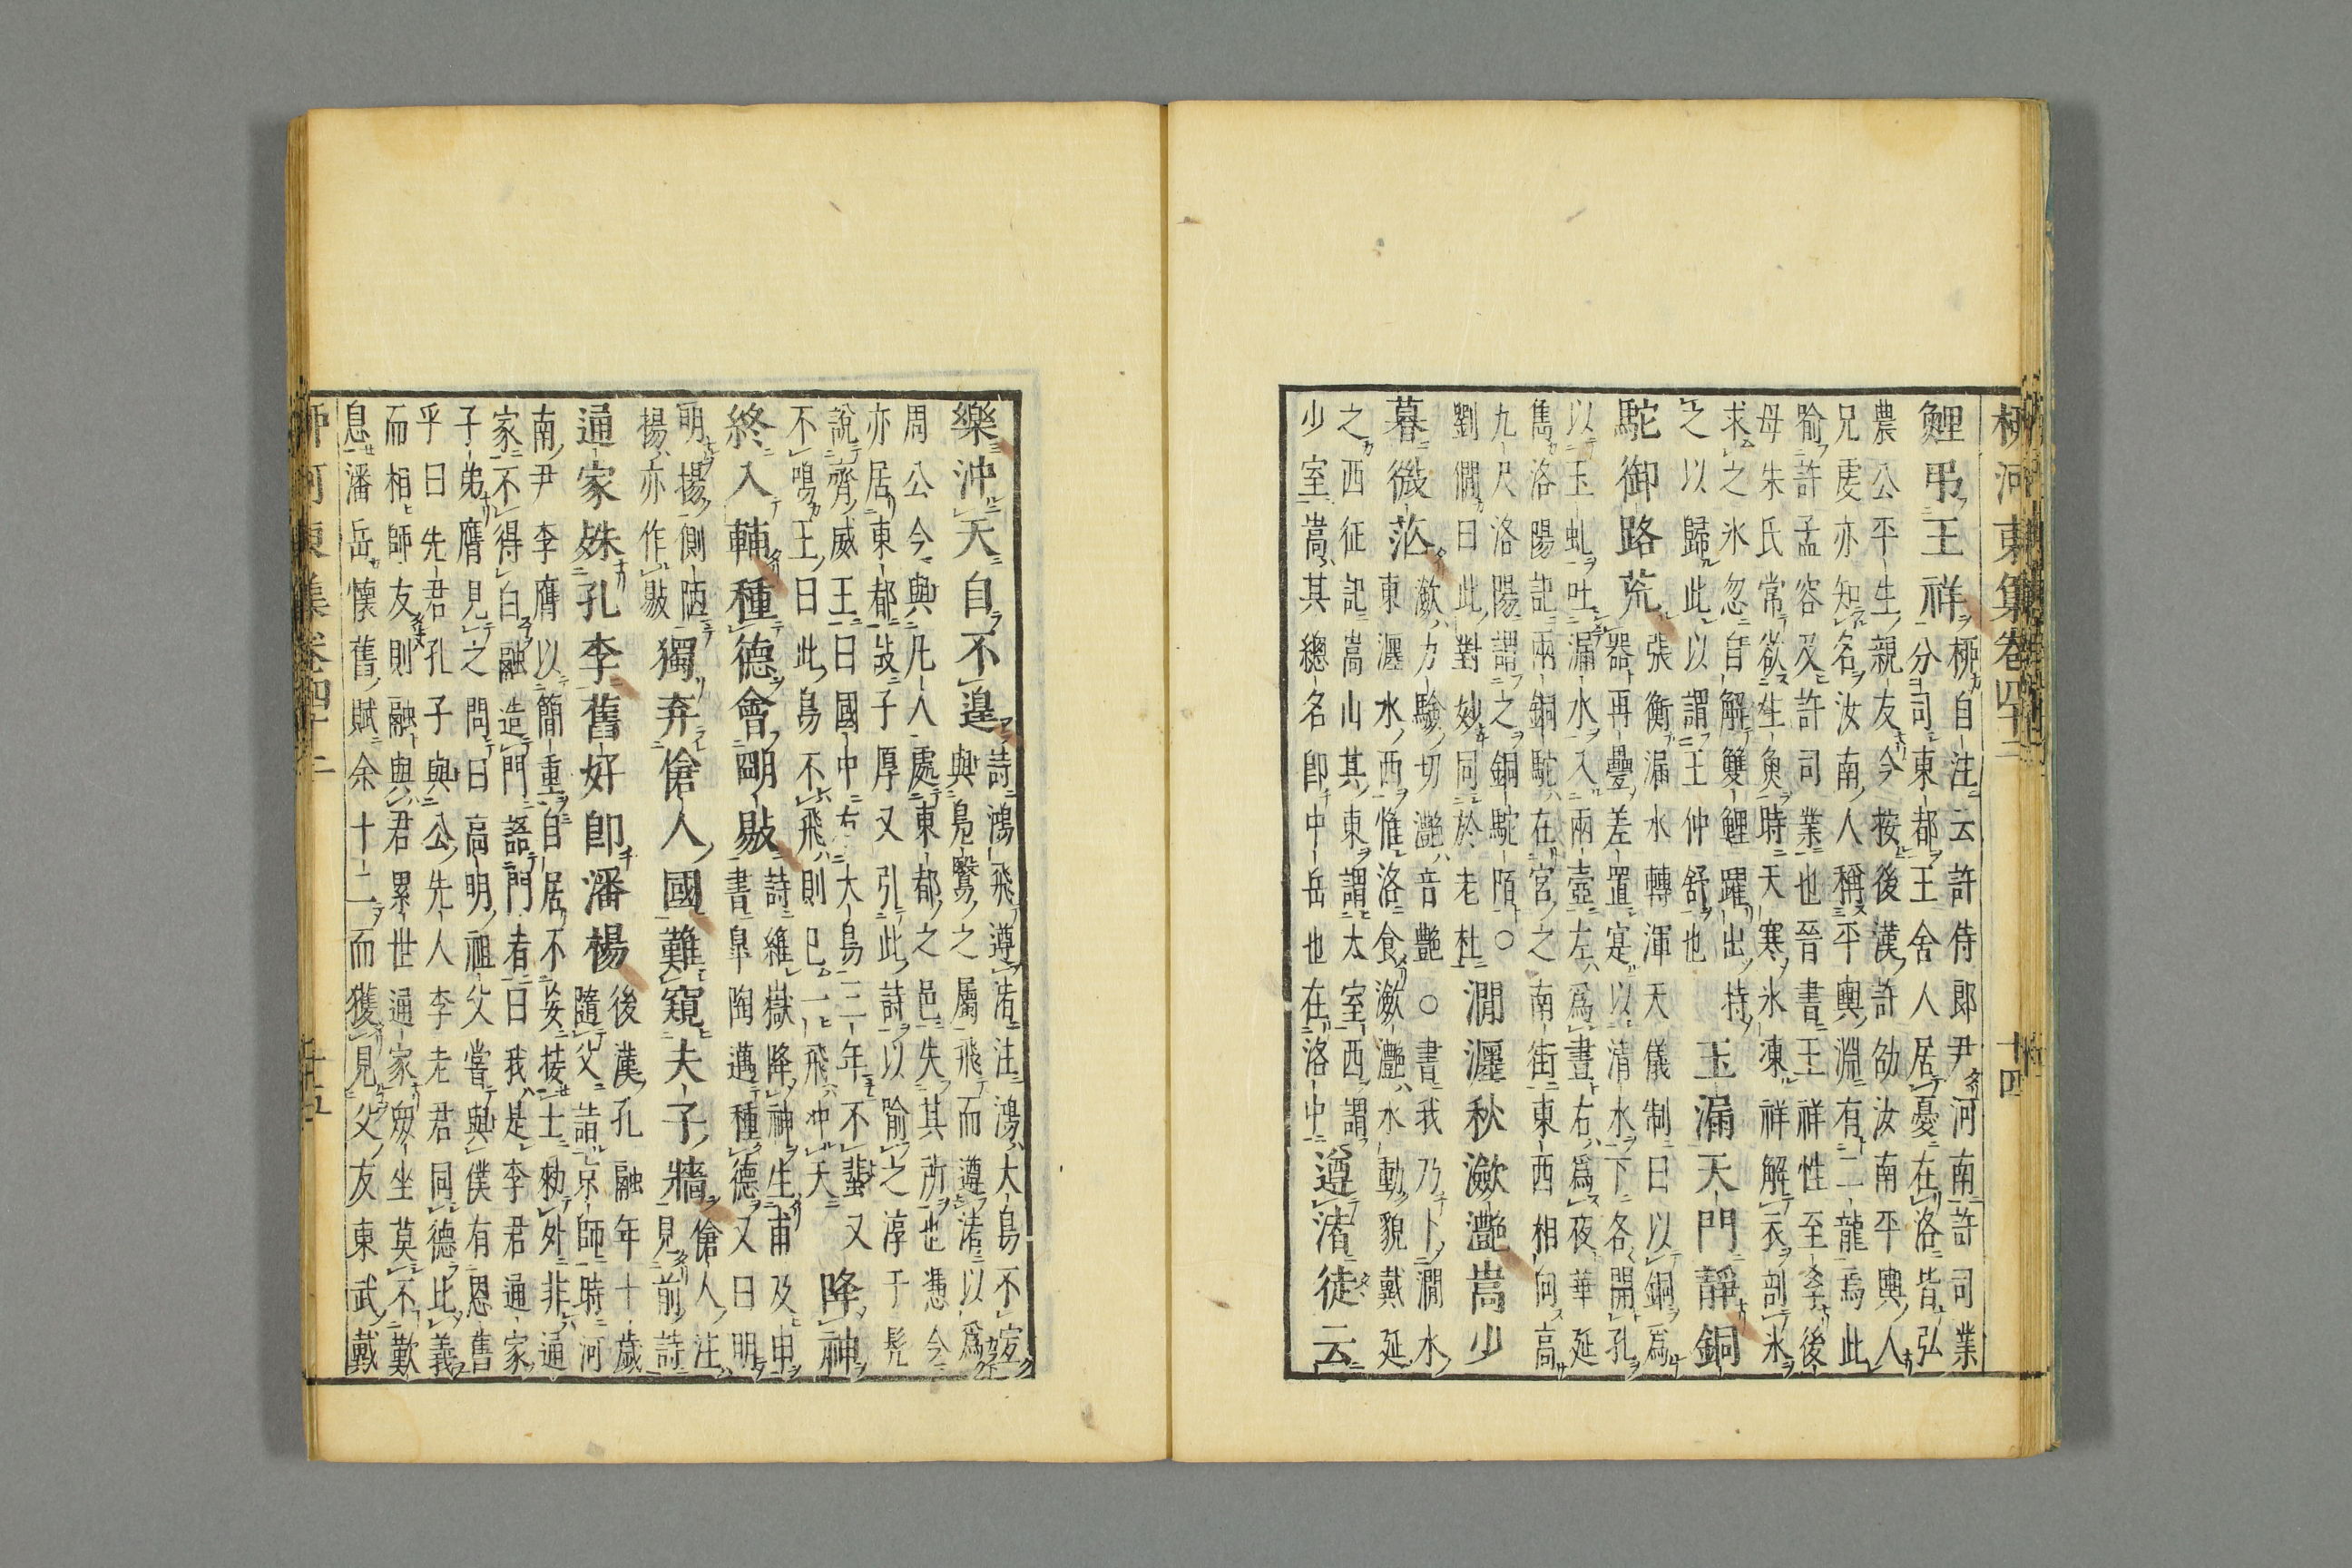 柳河東集卷四十二 十四
鯉弔王祥
柳自注云許侍郎尹河南許司業
分司東都王舍人居憂在洛皆弘
農公平生親友今按後漢許劭汝南平輿人
兄虔亦知名汝南人稱平輿淵有二龍焉此
喻許孟容及許司業也晉書王祥性至孝後
母朱氏常欲生魚時天寒氷凍祥解衣剖氷
求之氷忽自解雙鯉躍出持
之以歸此以謂王仲舒也
玉漏天門靜銅
駝御路荒
張衡漏水轉渾天儀制曰以銅為
器再疊差置寔以清水下各開孔
以玉虬吐漏水入兩壺左為晝右為夜華延
雋洛陽記兩銅駝在宮之南街東西相向高
九尺洛陽謂之銅駝陌○
劉㵎曰此對妙同於老杜
澗瀍秋瀲灩嵩少
暮微茫
瀲力驗切灩音艷○書我乃卜澗水
東瀍水西惟洛食瀲灩水動貌戴延
之西征記嵩山其東謂太室西謂
少室嵩其總名即中岳也在洛中
遵渚徒云
樂沖天自不遑
詩鴻飛遵渚注鴻大鳥不宜
與鳧鷖之屬飛而遵渚以為
周公今與凡人處東都之邑失其所也憑今
亦居東都故子厚又引此詩以喻之淳于髡
說齊威王曰國中有大鳥三年不蜚又
不鳴王曰此鳥不飛則已一飛沖天
降神
終入輔種德會明敭
詩維嶽降神生甫及申
書皐陶邁種德又曰明
明揚側陋
揚亦作敭
獨弃傖人國難窺夫子牆
傖人注
見前詩
通家殊孔李舊好即潘楊
後漢孔融年十歲
隨父詣京師時河
南尹李膺以簡重自居不妄接士勑外非通
家不得白融造門語門者曰我是李君通家
子弟膺見之問曰高明祖父嘗與僕有恩舊
乎曰先君孔子與公先人李老君同德比義
而相師友則融與君累世通家衆坐莫不歎
息潘岳懷舊賦余十二而獲見父友東武戴
柳河東集卷四十二 十五